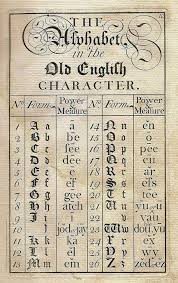 THE
Alphabet
in the
Old English
CHARACTER.
No Form Power & Measure No Form Power & Measure
1 A a ā 14 N n ĕn
2 B b bee 15 O o ō
3 C c see 16 P p pee
4 D d dee 17 Q q cu
5 E e ee 18 R r ar
6 F f ef 19 S s ess
7 G g gee 20 T t tee
8 H h 21 U u yu
9 I i ī 22 vee
10 jod,jay 23 W w dou,yu
11 K k ka 24 X x ex
12 L l el 25 Y y wi
13 M m em 26 Z z zed,ez